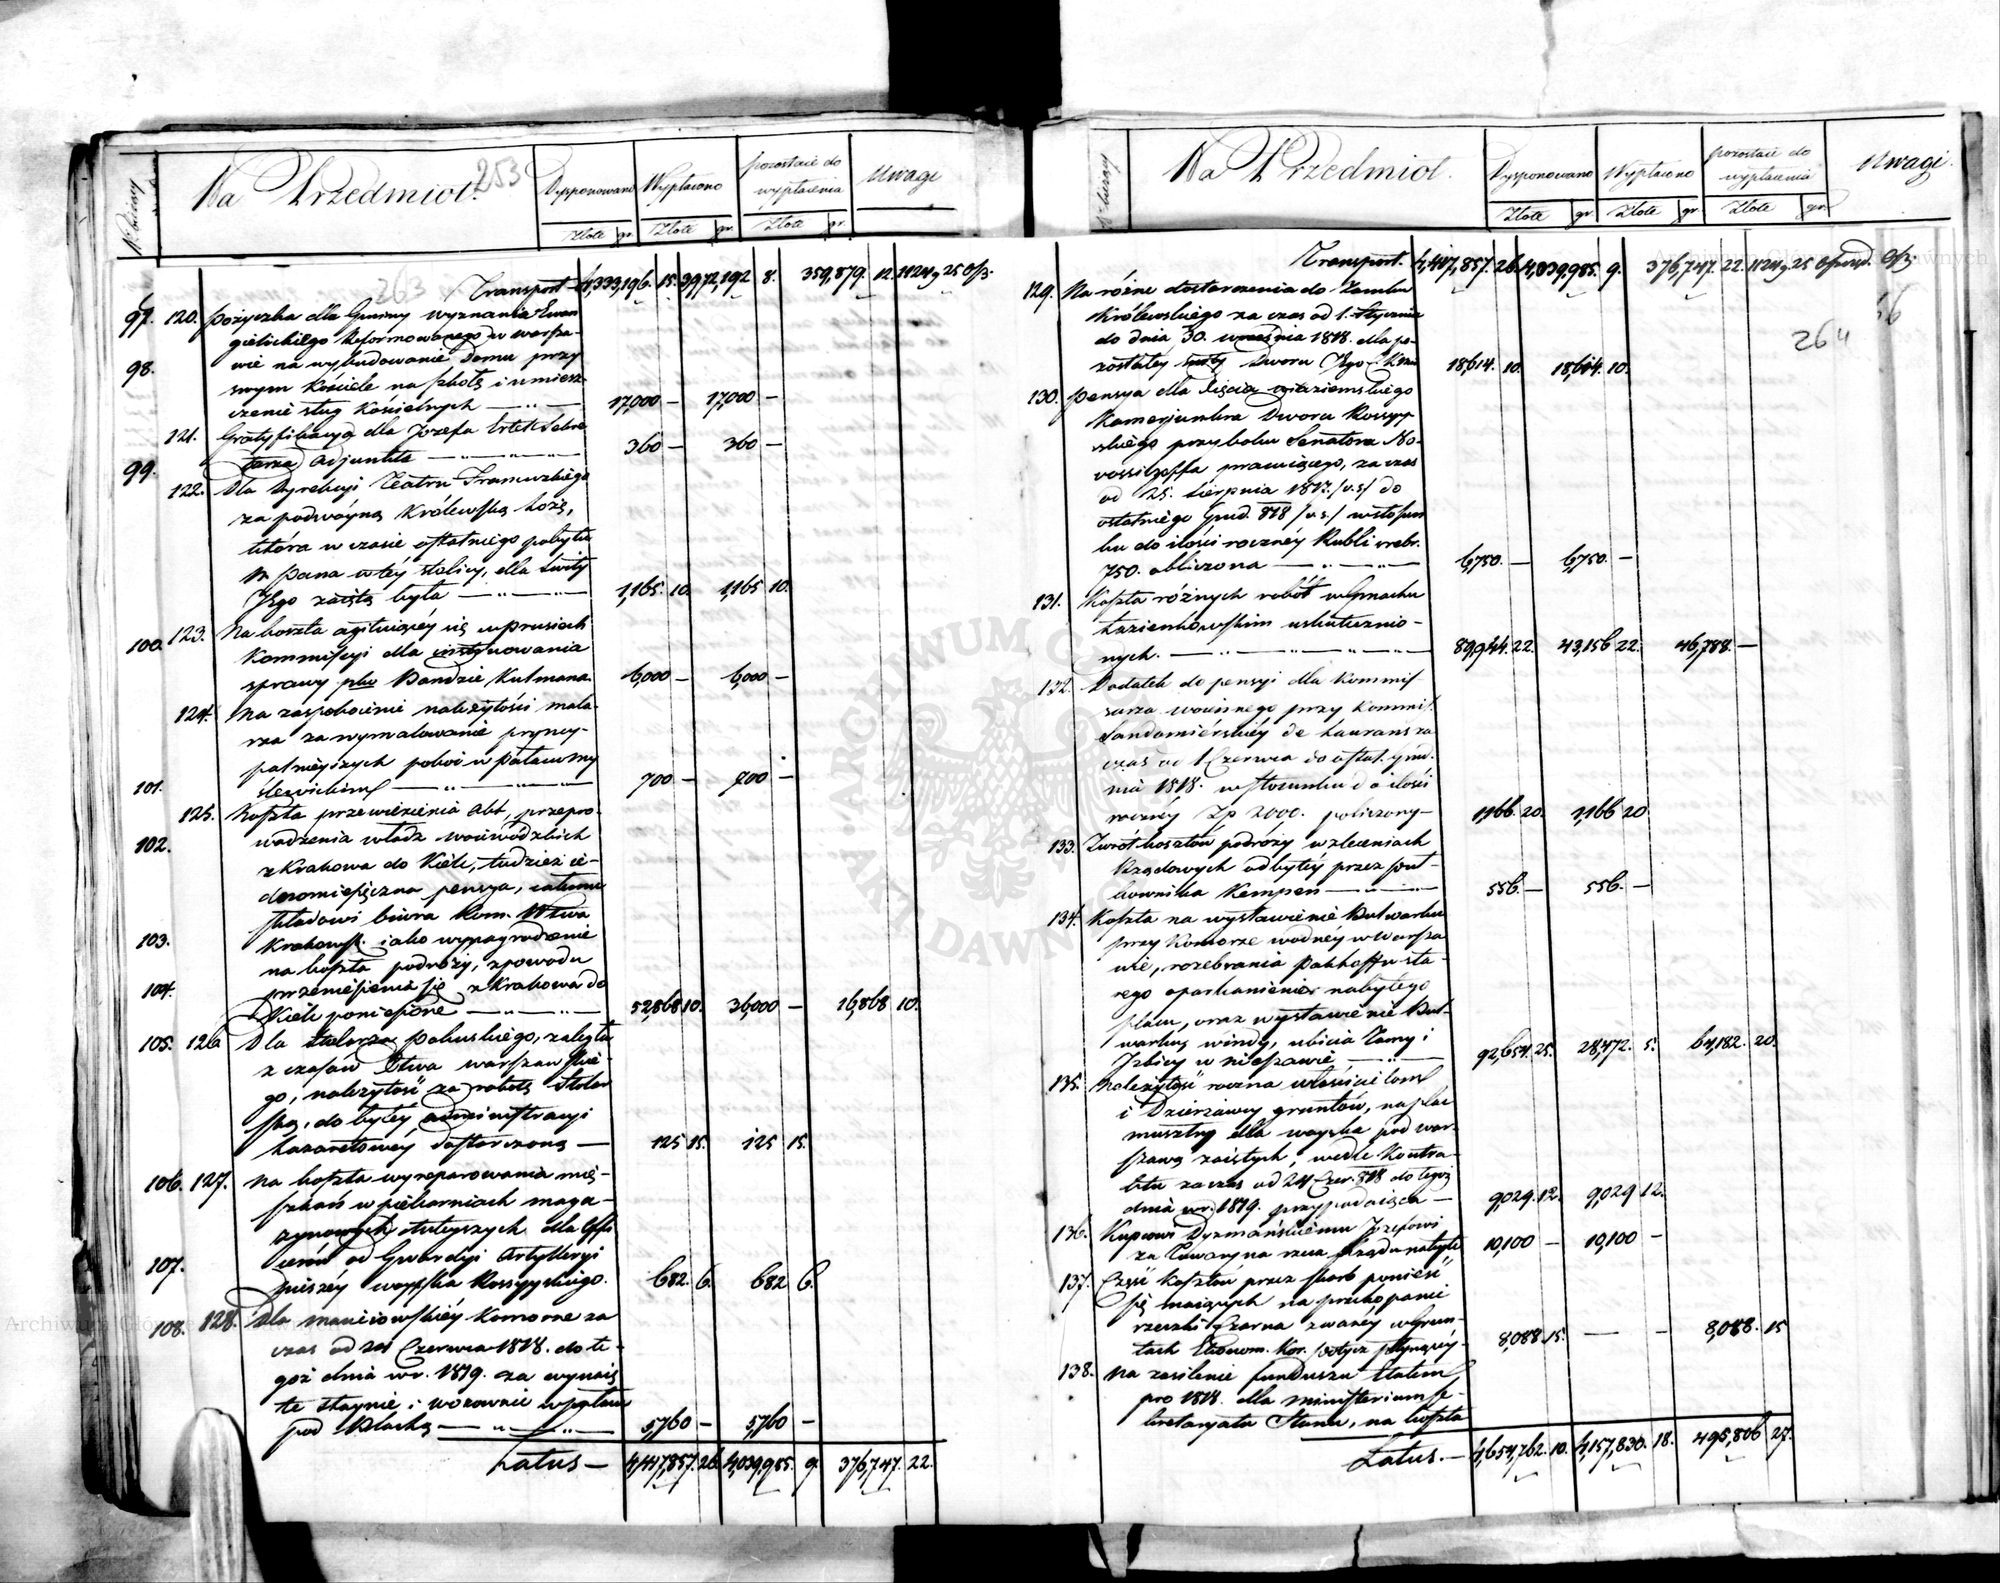 Na Przedmiot. 253 Dysponowano Wypłacono pozostaie do wypłacenia Uwagi
Złote gr. Złote gr. Złote gr.
263 Transport 4,333,196. 15. 3,972,192 8. 359,879. 12. 1124 g 25
97. 120. pożyczka dla Gminy wyznania Ewan
gielickiego Reformowanego w warsza-
98. wie na wybudowanie Domu przy
swym Kościele na szkołę i umiesz-
czenie sług Kościelnych 17,000 — 17,000 —
121. Gratyfikacya dla Jozefa
99. Adjunkta 360 — 360 —
122. Dla Dyrekcyi Teatru Francuzkiego
za podwóyną Królewską Lożę,
która w czasie ostatniego pobytu
N. Pana w téy stolicy, dla świty
Jego zaiętą była 1,165. 10. 1,165 10.
100. 123. Na koszta agituiącéy się w prusiech
Kommissyi dla
sprawy Bandzie Kutmana 6,000 — 6,000 —
124. Na zaspokoienie należytości mala-
rza za wymalowanie pryncy-
palnieyszych pokoi w pałacu my
101. ślewickim 700 — 700 —
125. Koszta przewiezienia Akt, przepro-
102. wadzenia władz woiewódzkich
z Krakowa do Kielc, tudzież ie-
dnomiesięczna pensya, całemu
składowi biura Kom. Wtwa
103. Krakowsk. iako wynagrodzenie
na koszta podróży, z powodu
104. przeniesienia się z Krakowa do
Kielc poniesione 52,868 10. 36,000 — 16,868 10.
105. 126 Dla stolarza Pakuskiego, zaległa
z czasów Xtwa warszawskie-
go, należytość za robotę stolar
ską, do byłéy administracyi
Lazaretowey dostarczoną — 125 15. 125 15.
106. 127. Na koszta wyreparowania mie-
szkań w piekarniach maga-
zynowych tuteyszych dla Offi
cerów od Gwardyi Artylleryi
107. pieszéy woyska Rossyyskiego. 682. 6. 682 6.
108. 128. Dla Manciowskiéy Komorne za
czas od 24 Czerwca 1818. do te-
goż dnia w r. 1819. za wynaię
te staynie i wozownie w pałacu
pod Blachą 5,760 — 5,760 —
Latus — 4,417,857. 26. 4,039,985. 9. 376,747. 22.
Na Przedmiot. Dysponowano Wypłacono pozostaie do wypłacenia Uwagi.
Złote gr. Złote gr. Złote gr.
Transport. 4,417,857. 26. 4,039,985. 9. 376,747. 22. 1124 g 25
129. Na różne dostarczenia do Zamku
Królewskiego za czas od 1. Stycznia
264
do dnia 30. września 1818. dla po-
zostałey Dworu Jego 18,614. 10. 18,614. 10.
130. Pensya dla Xięcia Wiaziemskiego
Kamerjunkra Dworu Rossyy
skiego przy boku Senatora No-
wossilzoffa pracuiącego, za czas
od 25. Sierpnia 1817. /v.s./ do
ostatniego Grud. 818 /v.s./ w stosun
ku do ilości rocznéy Rubli srebr.
750. obliczona 6,750. — 6,750. —
131. Koszta różnych robót w Gmachu
Łazienkowskim uskutecznio-
nych. 89,944. 22. 43,156 22. 46,788. —
132. Dodatek do pensyi dla Kommis
sarza woiennego przy Kommis.
Sandomiérskiéy de Laurans za
czas od 1 Czerwca do ostat. Grud.
nia 1818. w stosunku do ilości
rocznéy Zp 2000. policzony — 1,166. 20. 1,166 20
133. Zwrót kosztów podróży w zleceniach
Rządowych odbytéy przez puł-
kownika Kempen 556. — 556. —
134. Koszta na wystawienie Bulwarku
przy Komorze wodnéy w warsza
wie, rozebrania Pakhoffu sta-
rego oparkanienie nabytego
placu, oraz wystawienie Bul-
warku, windy, ubicia Tamy i
Izbicy w Nieszawie 92,654. 25. 28,472. 5. 64,182. 20.
135. Należytość roczna właścicielom
i Dzierżawcy gruntów, na plac
musztry dla woyska pod war-
szawą zaiętych, wedle Kontra-
ktu za czas od 24 Czer. 818 do tegoż
dnia w r. 1819. przypadaiąca — 9,029. 12. 9,029 12.
136. Kupcowi Dyzmańskiemu Jozefowi
za Towary na rzecz Rządu nabyte 10,100 — 10,100 —
137. Część Kosztów przez skarb ponieść
się maiących na przekopanie
rzeczki Czarna zwaney w Grun-
tach Ekonom. Kor. płynącéy. 8,088. 15. — — 8,088. 15
138. Na zasilenie funduszu Etatem
pro 1818. dla Ministerium se-
kretaryatu Stanu, na koszta
Latus. — 4,654,762. 10. 4,157,830. 18. 495,806 27.
ARCHIWUM GŁÓWNE AKT DAWNYCH